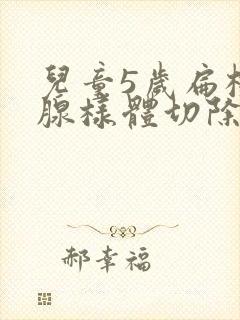 兒童5歲扁桃
腺樣體切除
郝幸福